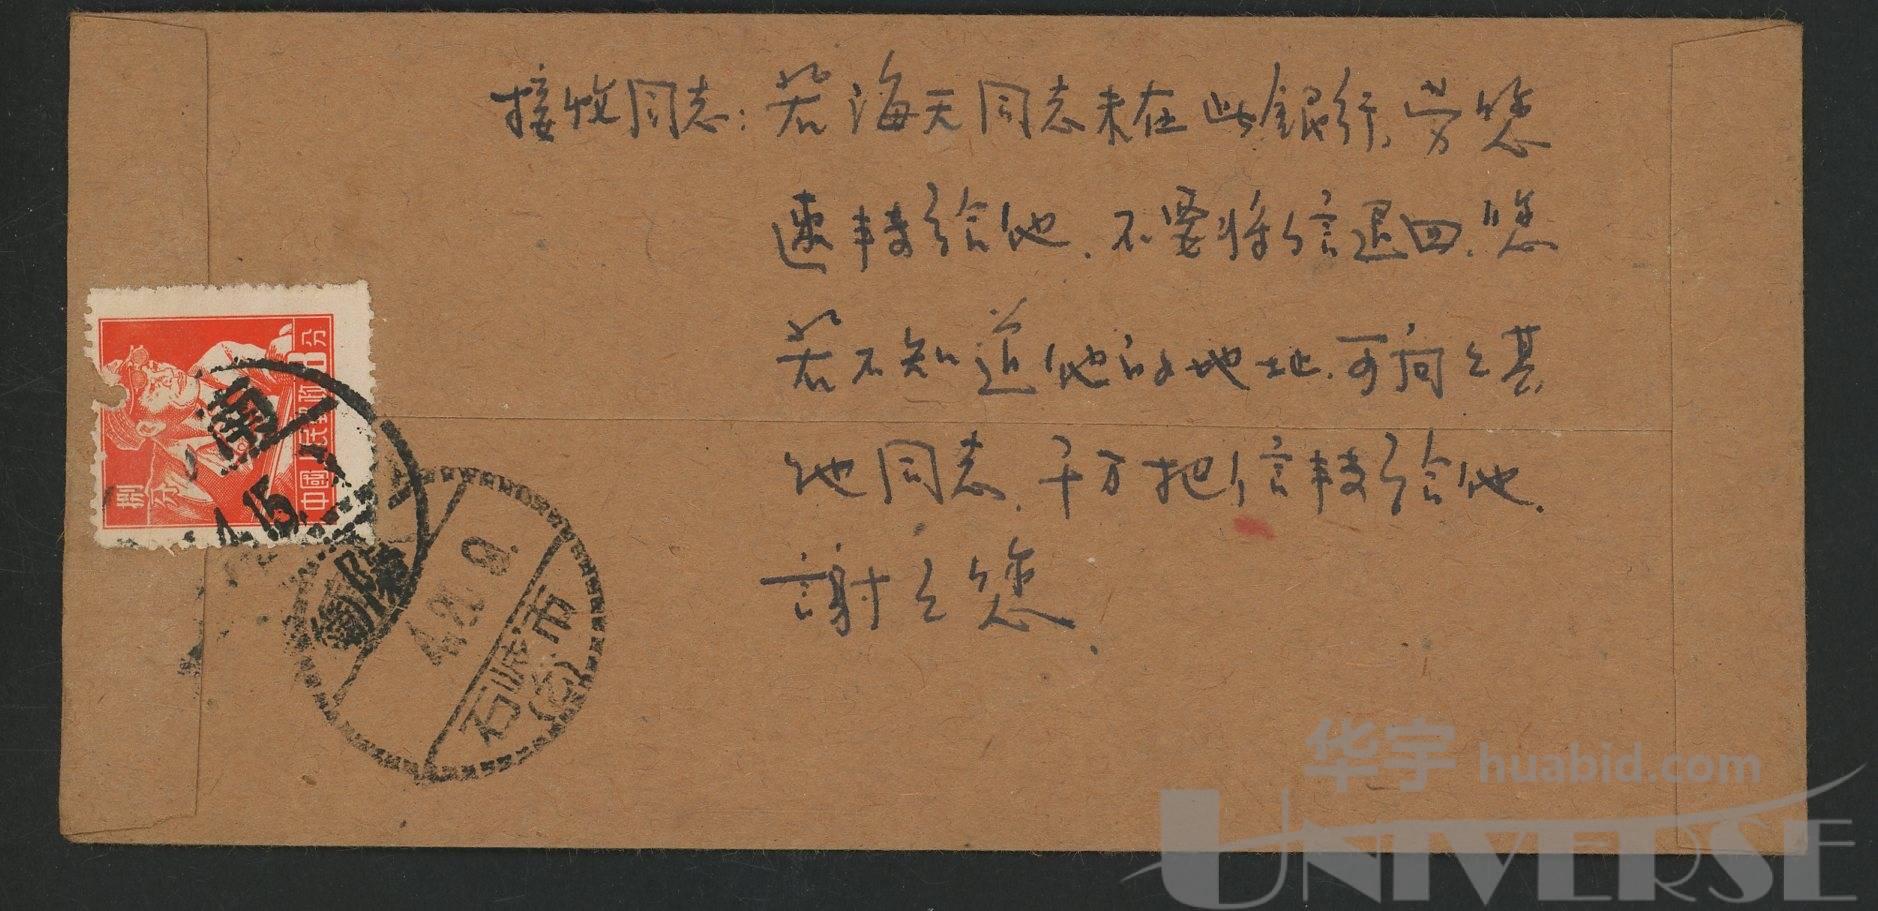 接收同志：若海天同志未在此銀行，劳您
速轉给他．不要將信退回．您
若不知道他的地址．可向之其
他同志．千万把信轉给他．
謝之您
8分
中國人民郵政
捌分
4.15.
4.21.9.
市
华宇 huabid.com
UNIVERSE